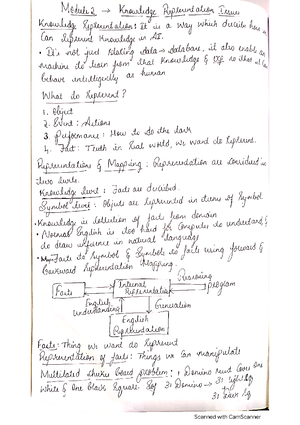 Module 2 → Knowledge Representation Issues
Knowledge Representation: It is a way which describe how we
Can Represent Knowledge in AI.
• It's not just storing data → database, it also enables
machine to learn from that Knowledge & so that it can
behave intelligently as human
What do Represent?
1. Object
2. Event: Actions
3. Performance: How to do the task
4. Fact: Truth in Real world, we want do Represent.
Representations & Mapping: Representation are considered in
two levels.
Knowledge level: Facts are decided.
Symbol level: Objects are represented in terms of Symbol
• Knowledge is collection of facts from domain
• Normal English is too hard for Computer to understand &
do draw inference in natural language
Facts to Symbol & Symbols to facts using forward &
backward representation Mapping.
Reasoning
Facts
Internal
Representation
program
English
Understanding
Generation
English
Representation
Facts: Thing we want do Represent
Representation of facts: Things we can manipulate
Mutilated checker board problem: 1 Domino must Cover One
White & One black Square. 31 Domino → 31
31
Scanned with CamScanner